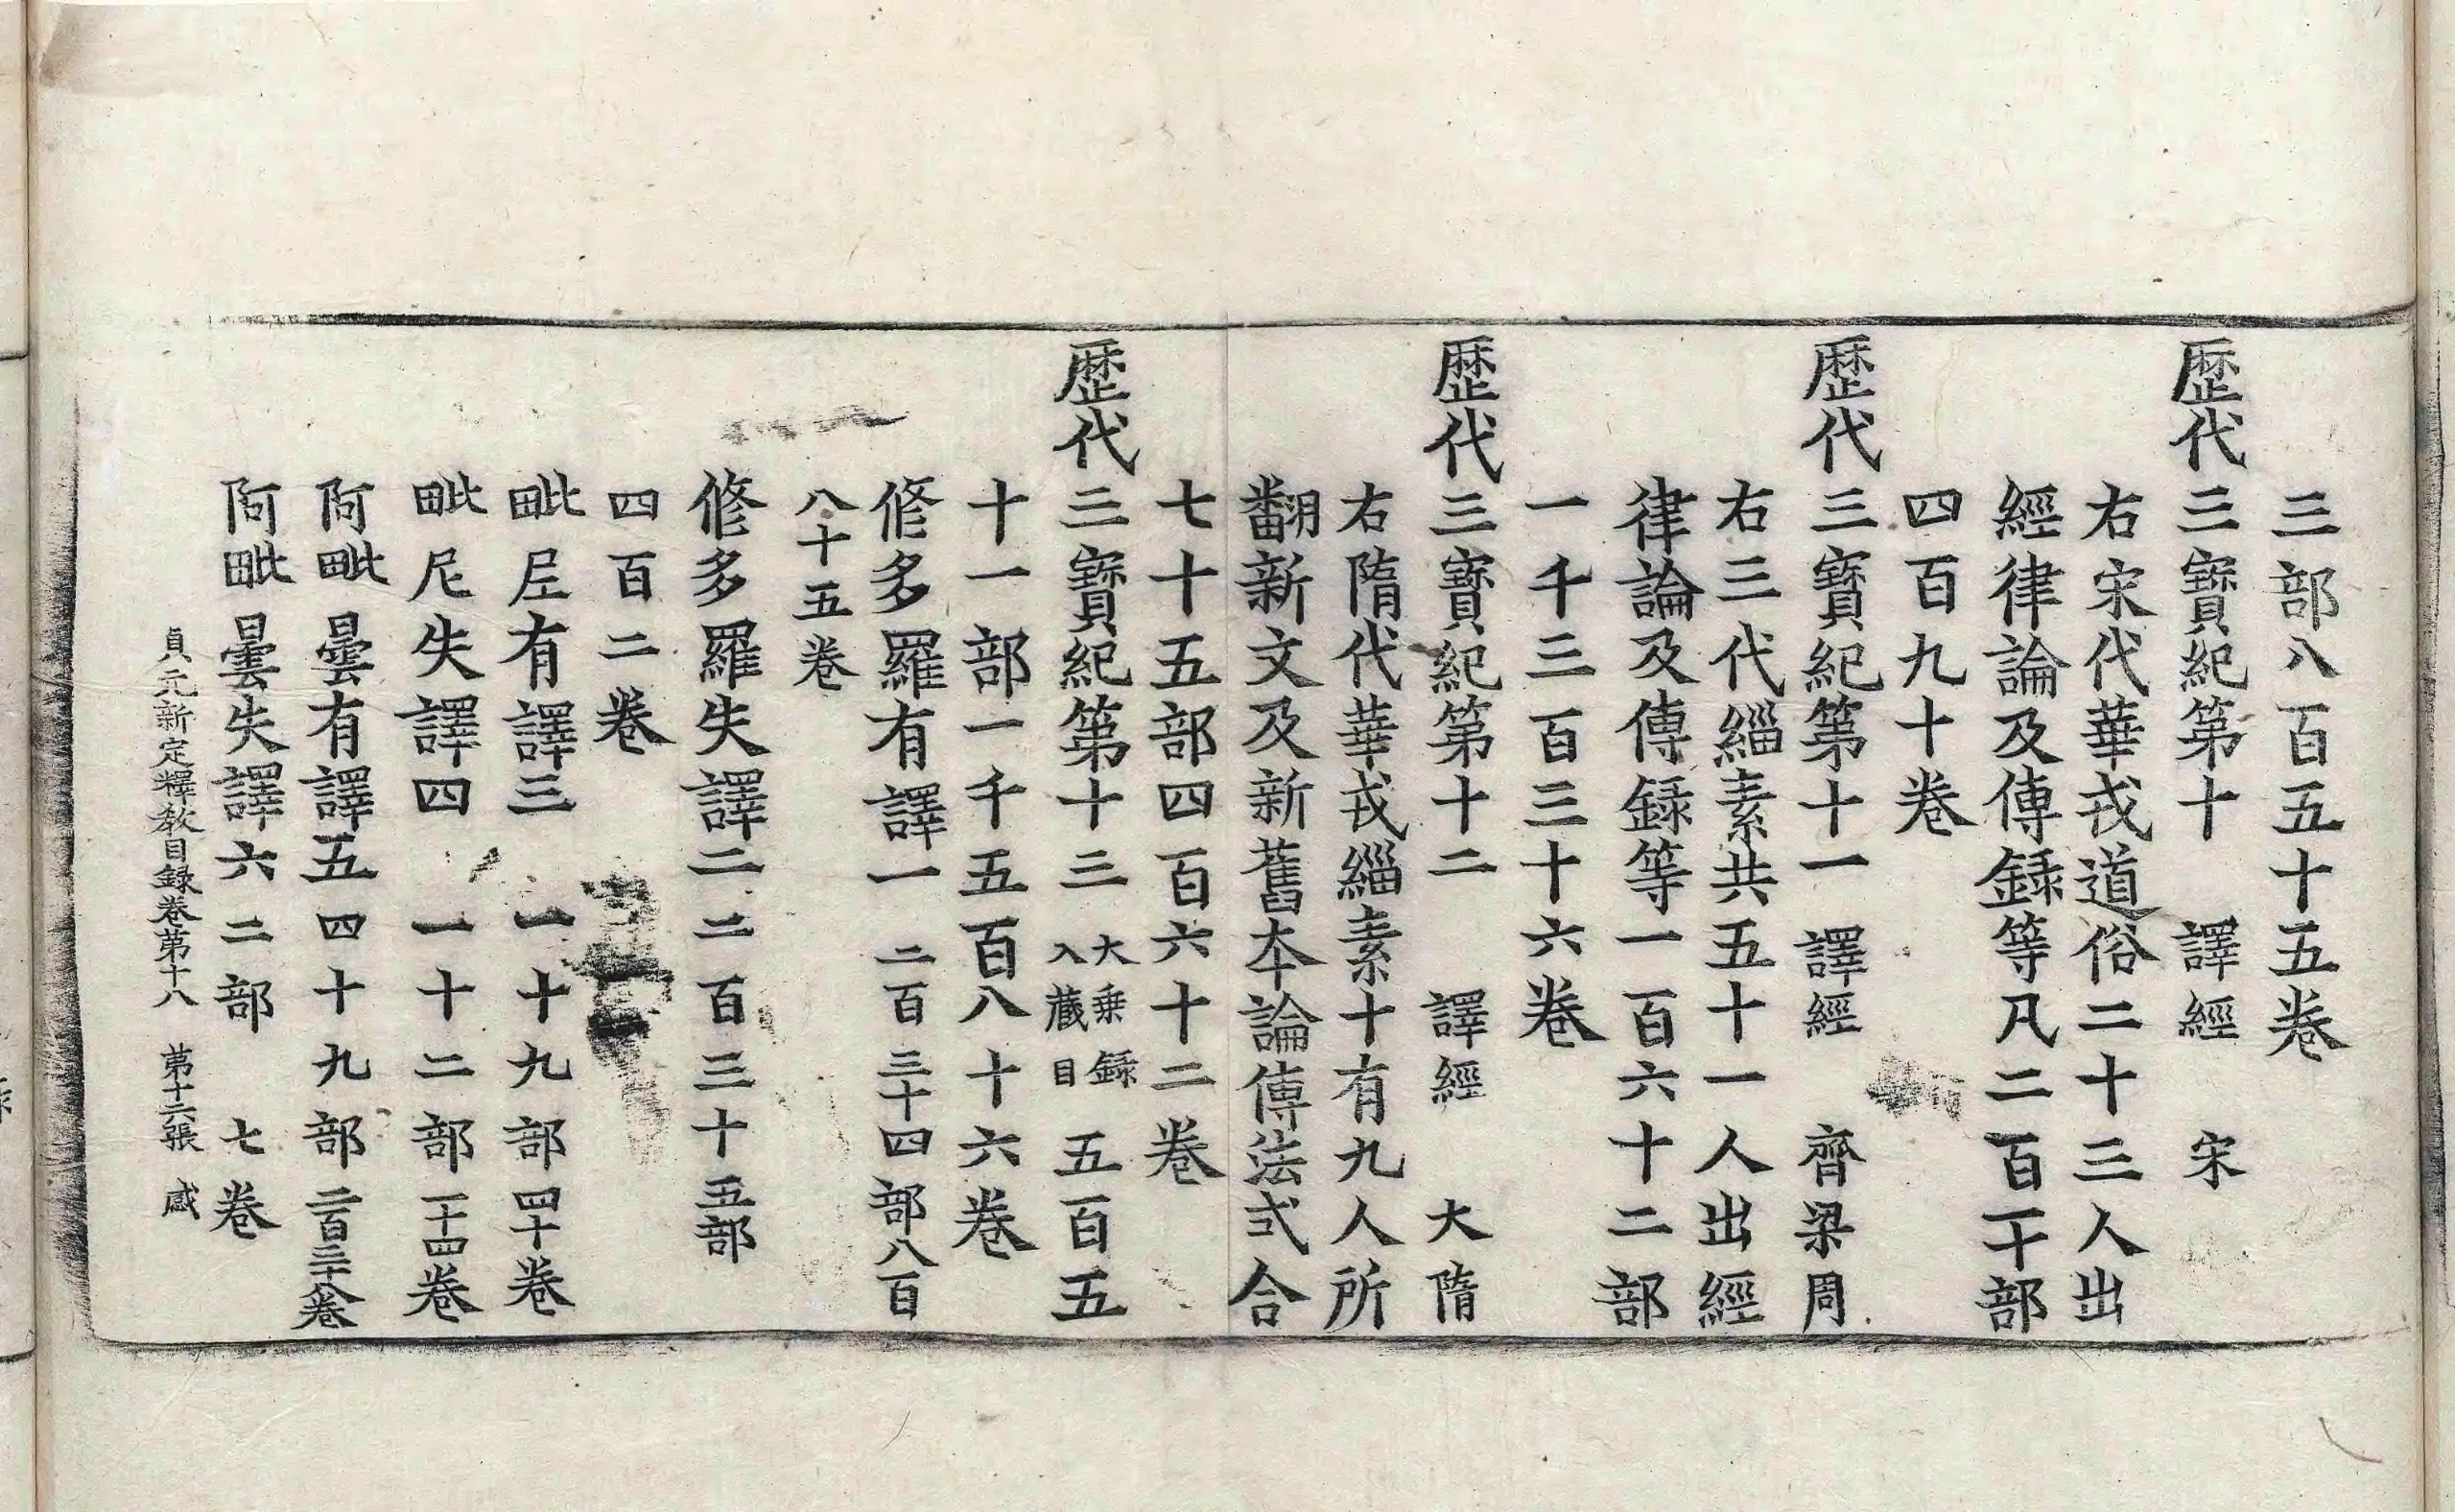 三部八百五十五卷
歷代三寶紀第十　譯經　宋
右宋代華戎道俗二十三人出
經律論及傳録等凡二百一十部
四百九十卷
歷代三寶紀第十一　譯經　齊梁周
右三代緇素共五十一人出經
律論及傳録等一百六十二部
一千三百三十六卷
歷代三寶紀第十二　譯經　大隋
右隋代華戎緇素十有九人所
翻新文及新舊本論傳法式合
七十五部四百六十二卷
歷代三寶紀第十三　大乗録入藏目　五百五
十一部一千五百八十六卷
修多羅有譯一　二百三十四部八百
八十五卷
修多羅失譯二　二百三十五部
四百二卷
毗尼有譯三　一十九部四十卷
毗尼失譯四　一十二部一十四卷
阿毗曇有譯五　四十九部二百三十八卷
阿毗曇失譯六　二部　七卷
貞元新定釋教目録卷第十八　第十六張　感